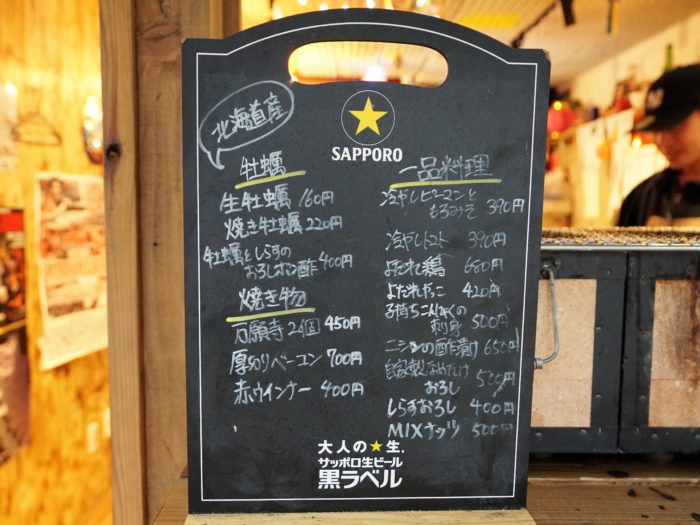 北海道産
SAPPORO
牡蠣
生牡蠣 160円
焼き牡蠣 220円
牡蠣としらすの
おろしポン酢 400円
焼き物
万願寺 2個 450円
厚切りベーコン 700円
赤ウインナー 400円
一品料理
冷やしピーマンと
もろみそ 390円
冷やしトマト 390円
よだれ鶏 680円
よだれだっこ 420円
子持ちこんにゃくの
刺身 500円
ニシンの酢漬け 650円
自家製なめたけ
おろし 500円
しらすおろし 400円
MIXナッツ 500円
大人の★生.
サッポロ生ビール
黒ラベル